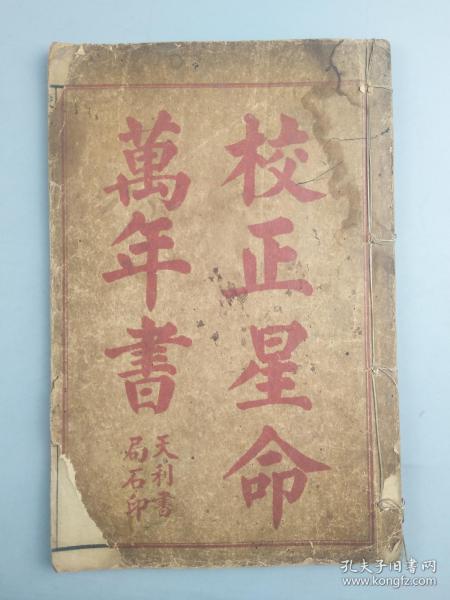 校正星命
萬年書
天利書
局石印
孔夫子旧书网
www.kongfz.com